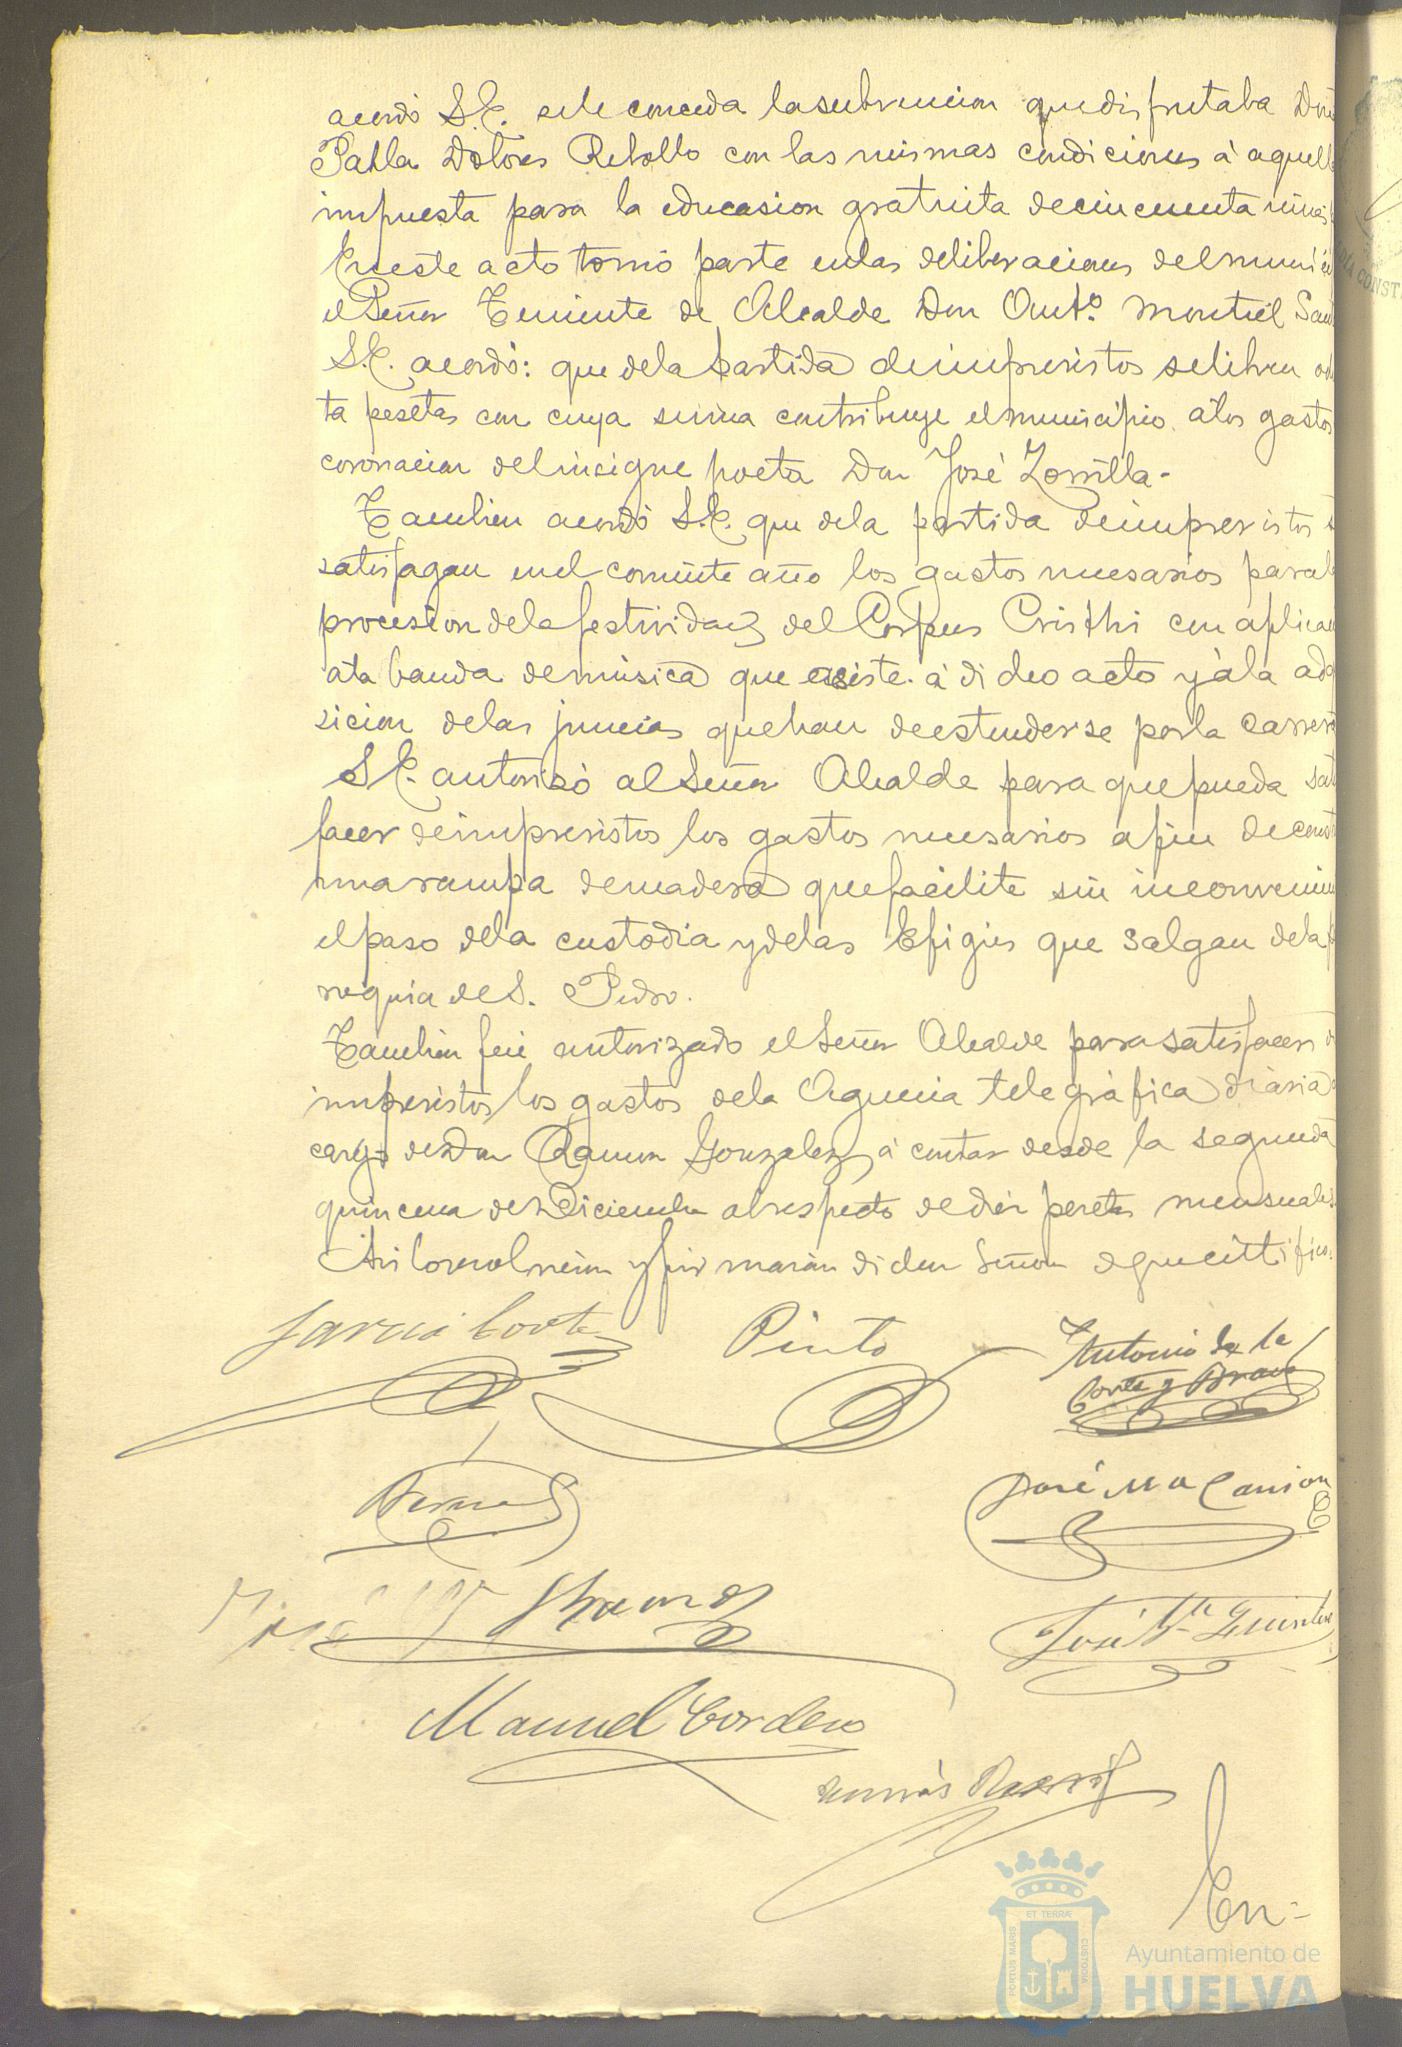 acordó S.E. se le conceda la subvencion que disfrutaba Doña
Pabla Dolores Rebollo con las mismas condiciones á aquella
impuesta para la educasion gratuita de cincuenta niñas
En este acto tomó parte en las deliberaciones del munici
el Señor Teniente de Alcalde Don Antº. Montiel San
S.E. acordó: que de la partida de imprevistos se libren
ta pesetas con cuya suma contribuye el municipio á los gastos
coronacion del insigne poeta Don José Zorrilla-
Tambien acordó S.E. que de la partida de imprevistos s
satisfagan en el corriente año los gastos nuesarios para la
procesion de la festividad del Corpus Cristhi con aplicac
a la banda de música que asiste á dicho acto y á la adq
sicion de las juncias que han de estenderse por la carrera
S.E. autorizó al Señor Alcalde para que pueda sat
facer de imprevistos los gastos nuesarios a fin de const
una rampa de madera que facilite sin inconvenien
el paso de la custodia y de las Efigies que salgan de la p
roquia de S. Pedro.
Tambien fué autorizado el Señor Alcalde para satisfacer d
imprevistos los gastos de la Agencia telegráfica diaria
cargo de Don Ramon Gonzalez, á contar desde la segunda
quincena de Diciembre al respecto de diez pesetas mensuales
Asi lo resolvieron y firmarán dichos Señores de que certifico.
Garcia Cortes
Pinto
Antonio de la
Corte y Bravo
José Mª Carrion
José Mª Quintero
Manuel Cordero
Tomás
En-
PORTUS MARIS
ET TERRÆ
CUSTODIA
Ayuntamiento de
HUELVA